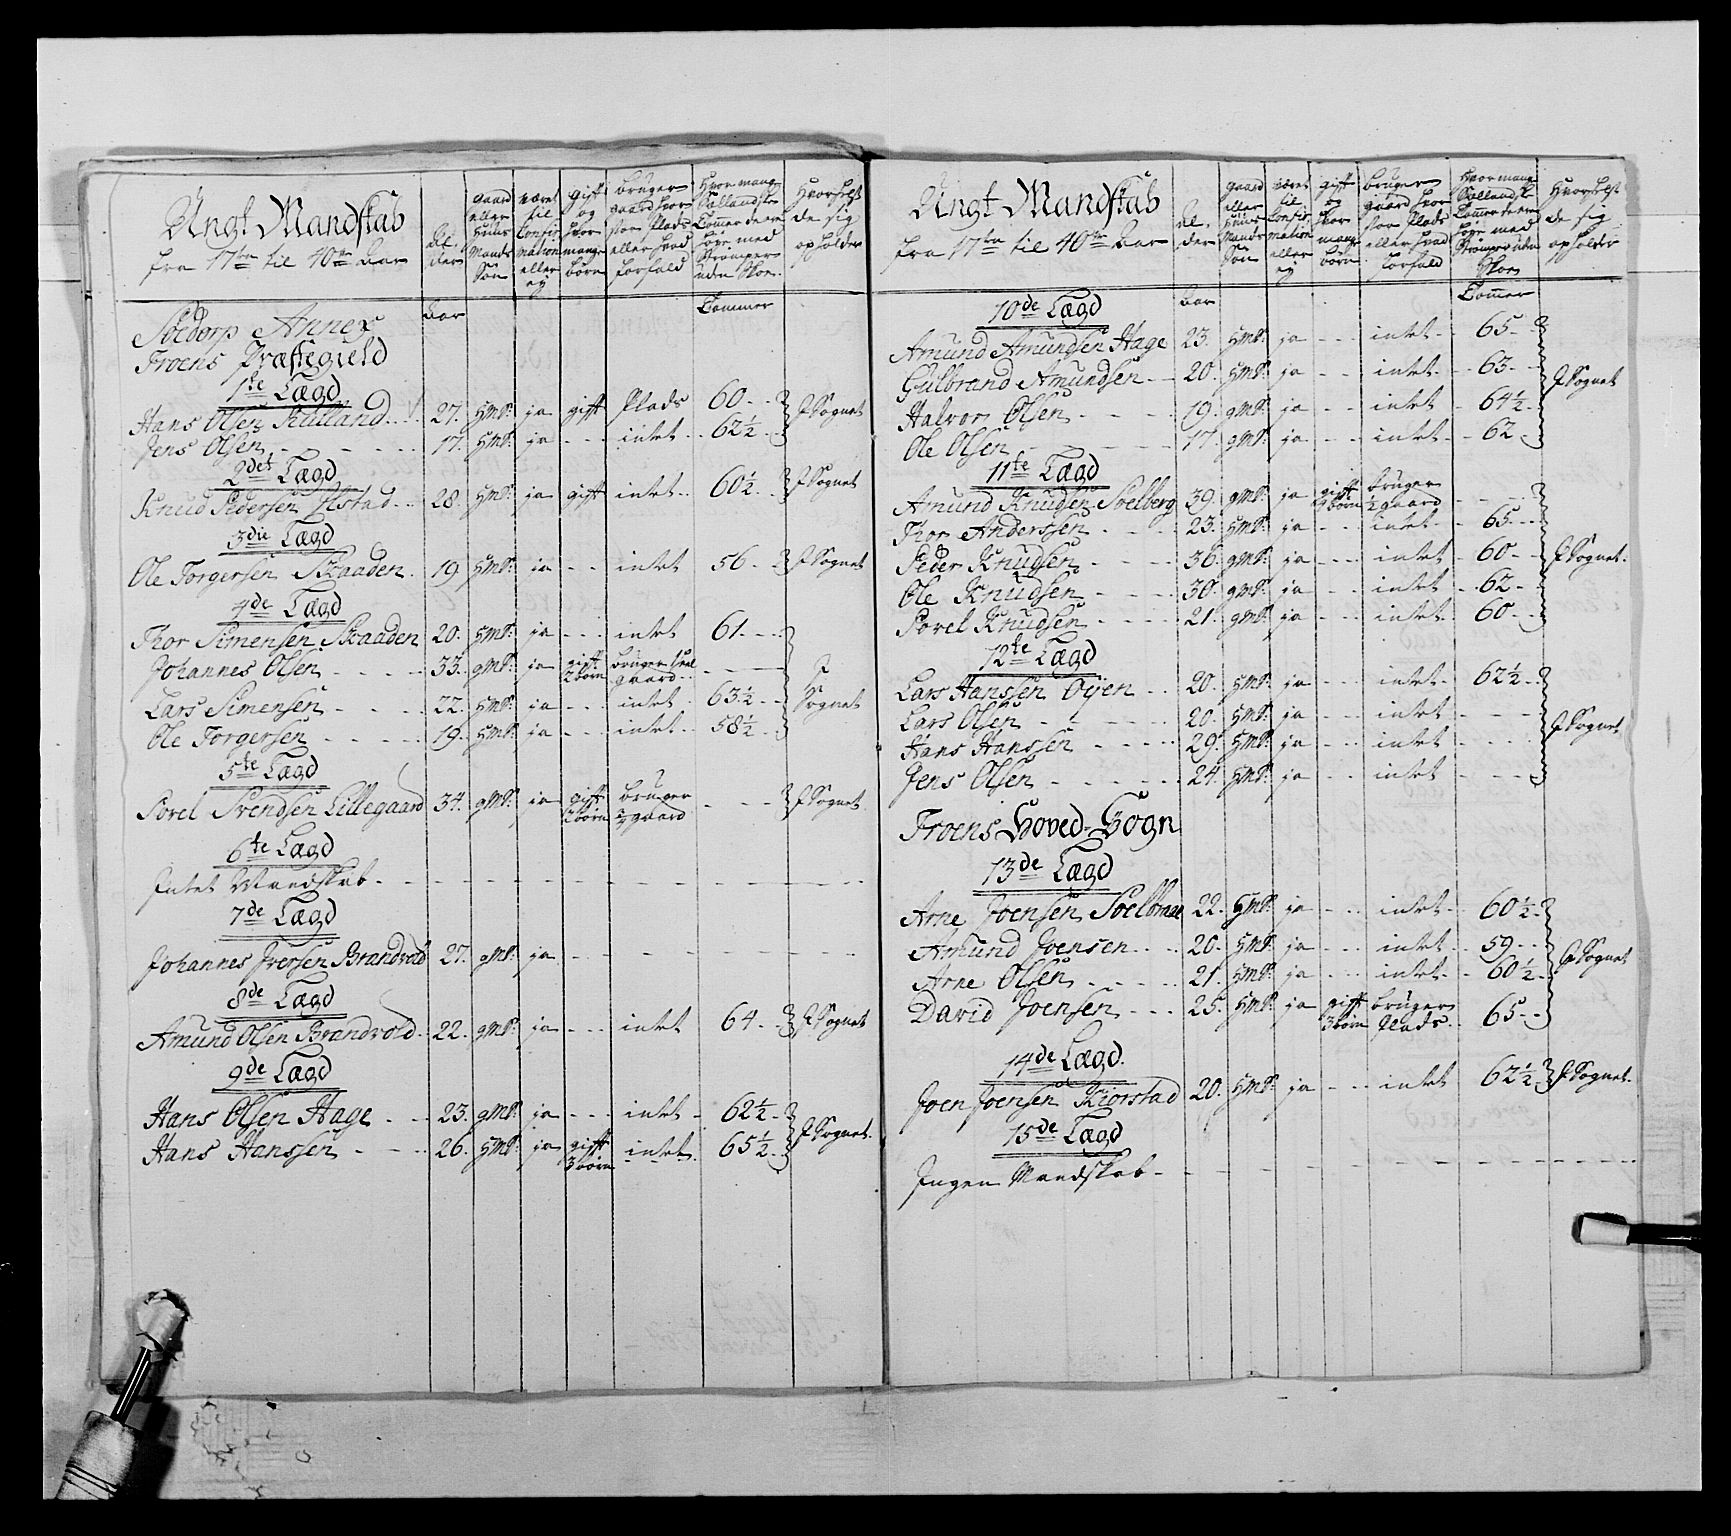 Ungt Mandskab
fra 17ten til 40de Aar
Al-
der
gaard
eller
Huus
Mands
Søn
været
til
Confir
mation
eller
ey
gift
og
hvor
mange
børn
bruger
gaard hvor
stor Plads
eller hvad
forfald
Hvor mange
Siællandske
Tommer de ere
høye med
Strømper
uden Skoe
Hvorhelst
de sig
opholder
Aar
Tommer
Soedorp Annex
Froens Præstegield
1ste Lægd
Hans Olsen Rulland 27. HmS. ja gift Plads 60
Jens Olsen 17. HmS. ja intet 62½
J Sognet
2det Lægd
Knud Pedersen Elstad 28. HmS. ja gift intet 60½ J Sognet
3die Lægd
Ole Torgersen Skaaden 19 HmS. ja intet 56 J Sognet
4de Lægd
Thor Simensen Skaaden 20. HmS. ja intet 61
Johannes Olsen 33. gmS. ja gift 2 børn bruger heel gaard
Lars Simensen 22. HmS. ja intet 63½
Ole Torgersen 19. HmS. ja intet 58½
J Sognet
5te Lægd
Povel Svendsen Lillegaard 34. gmS. ja gift 2 børn bruger gaard J Sognet
6te Lægd
Intet Mandskab
7de Lægd
Johannes Iversen Brandvold 27. gmS. ja
8de Lægd
Amund Olsen Brandvold 22. gmS. ja intet 64 J Sognet
9de Lægd
Hans Olsen Hage 23. gmS. ja intet 62½
Hans Hanssen 26. HmS. ja gift 3 børn intet 65½
J Sognet
Ungt Mandskab
fra 17ten til 40de Aar
Al-
der
gaard
eller
Huus
Mands
Søn
været
til
Confir
mation
eller
ey
gift
og
hvor
mange
børn
bruger
gaard hvor
stor Plads
eller hvad
forfald
Hvor mange
Siællandsk
Tommer de ere
høye med
Strømper uden
Skoe
Hvorhelst
de sig
opholder
Aar
Tommer
10de Lægd
Amund Amundsen Hage 23. HmS. ja intet 65
Gulbrand Amundsen 20. HmS. ja intet 63
Halvor Olsen 19. gmS. ja intet 64½
Ole Olsen 17. gmS. ja intet 62
J Sognet
11te Lægd
Amund Knudsen Solberg 39. gmS. ja gift børn bruger ½ gaard
Thor Anderssen 23. HmS. ja intet 65
Peder Knudsen 36. gmS. ja intet 60
Ole Knudsen 30. gmS. ja intet 62
Povel Knudsen 21. gmS. ja intet 60
J Sognet
12te Lægd
Lars Hanssen Øyen 20. HmS. ja intet 62½
Lars Olsen 20. HmS. ja intet
Hans Hanssen 29. HmS. ja intet
Jens Olsen 24. HmS. ja intet
J Sognet
Froens Hoved-Sogn
13de Lægd
Arne Joensen 22. HmS. ja intet 60½
Amund Joensen 20. HmS. ja intet 59
Arne Olsen 21. HmS. ja intet 60½
David Joensen 25. HmS. ja gift 3 børn bruger Plads 65
J Sognet
14de Lægd
Joen Joensen Kiorstad 20. HmS. ja intet 62½ J Sognet
15de Lægd
Ingen Mandskab